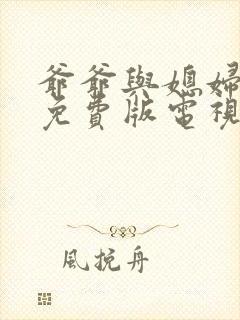 爺爺與媳婦
免費版電視
風挽舟